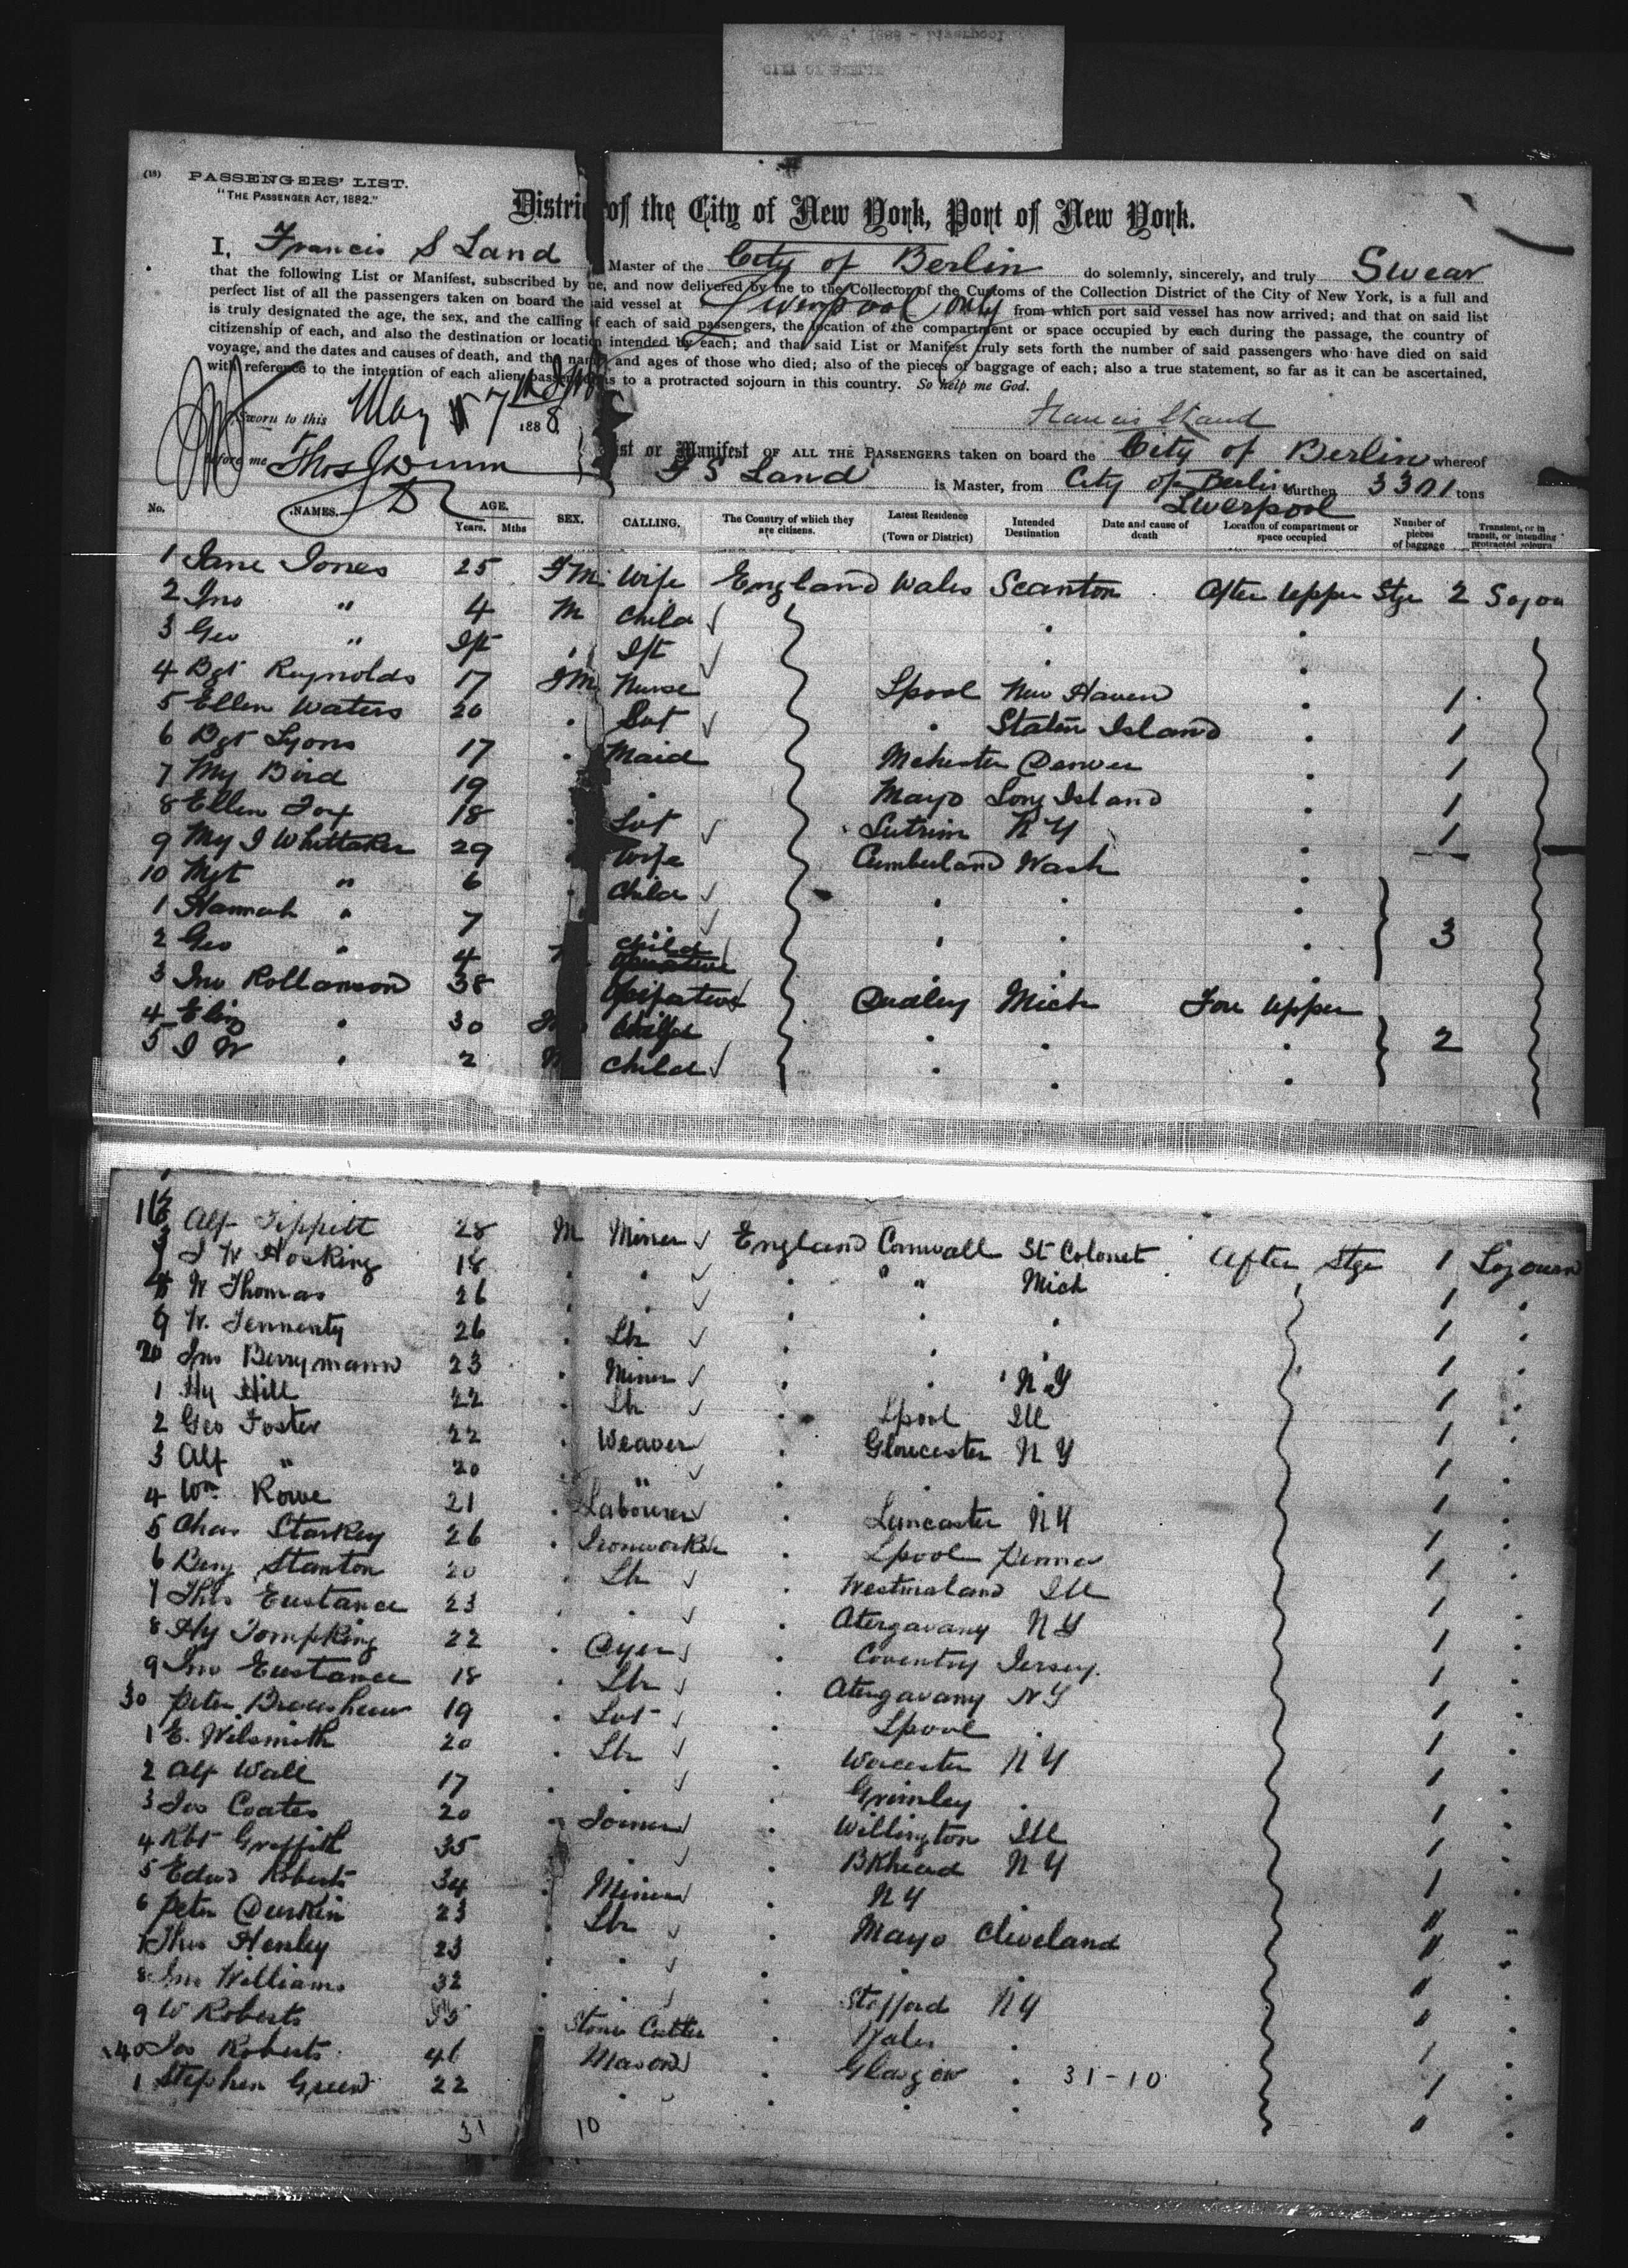 (18) PASSENGERS' LIST.
"THE PASSENGER ACT, 1882."
District of the City of New York, Port of New York.
I, Francis S Land Master of the City of Berlin do solemnly, sincerely, and truly Swear
that the following List or Manifest, subscribed by me, and now delivered by me to the Collector of the Customs of the Collection District of the City of New York, is a full and
perfect list of all the passengers taken on board the said vessel at Liverpool only from which port said vessel has now arrived; and that on said list
is truly designated the age, the sex, and the calling of each of said passengers, the location of the compartment or space occupied by each during the passage, the country of
citizenship of each, and also the destination or location intended by each; and that said List or Manifest truly sets forth the number of said passengers who have died on said
voyage, and the dates and causes of death, and the names and ages of those who died; also of the pieces of baggage of each; also a true statement, so far as it can be ascertained,
with reference to the intention of each alien passenger as to a protracted sojourn in this country. So help me God.
Sworn to this May 7 1888. Francis S Land
before me
List or Manifest OF ALL THE PASSENGERS taken on board the City of Berlin whereof
F S Land is Master, from City of Berlin burthen 3301 tons
Liverpool
No. NAMES. AGE. Years. Mths SEX. CALLING. The Country of which they are citizens. Latest Residence (Town or District) Intended Destination Date and cause of death Location of compartment or space occupied Number of pieces of baggage Transient, or in transit, or intending protracted sojourn
1 Jane Jones 25 Fm Wife England Wales Scanton After Upper Stge 2 Sojou
2 Jno " 4 M Child
3 Geo " Ift Ift
4 Bgt Reynolds 17 Fm Nurse Lpool New Haven 1
5 Ellen Waters 20 Svt Staten Island 1
6 Bgt Lyons 17 Maid Mchester Denver 1
7 My Bird 19 Mayo Long Island 1
8 Ellen Foy 18 Svt Leitrim N Y 1
9 My J Whittaker 29 Wife Cumberland Wash
10 Mgt " 6 Child
1 Hannah " 7 3
2 Geo " 4 Child
3 Jno Rollanson 38 Dudley Mich Fore Upper
4 Eliz " 30 Wife 2
5 J W " 2 M Child
16 Alf Tippett 28 M Miner England Cornwall St Colonet After Stge 1 Sojourn
J W Hosking 18 " "
W Thomas 26 Mich 1
9 W. Tennenty 26 Lbr 1
20 Jno Berrymann 23 Miner N Y 1
1 Hy Hill 22 Lbr Lpool Ill 1
2 Geo Foster 22 Weaver Gloucester N Y 1
3 Alf " 20 " 1
4 Wm Rowe 21 Labourer Lancaster N Y 1
5 Chas Starkey 26 Ironworker Lpool Penna 1
6 Benj Stanton 20 Lbr Westmoland Ill 1
7 Thos Eustance 23 Atergavany N Y 1
8 Hy Tompking 22 Dyer Coventry Jersey. 1
9 Jno Eustance 18 Lbr Atergavany N Y 1
30 Peter 19 Svt Lpool 1
1 E. Wilsmith 20 Lbr Worcester N Y 1
2 Alf Wall 17 Grimley 1
3 Jos Coates 20 Joiner Willington Ill 1
4 Rbt Griffith 35 Bkhead N Y 1
5 Edwd Roberts 34 Miner N Y 1
6 Peter Durkin 23 Lbr Mayo Cleveland "
7 Thos Henley 23 "
8 Jno Williams 32 Stafford N Y "
9 W Roberts Stone Cutter Wales "
40 Jos Roberts 46 Mason Glasgow 31-10 1
1 Stephen Green 22 1
31 10 "